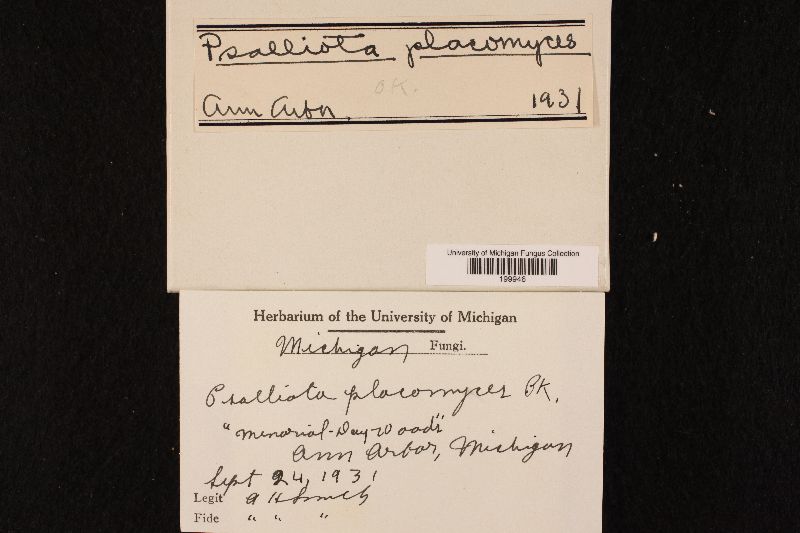 Psalliota placomyces
OK.
Ann Arbor, 1931
University of Michigan Fungus Collection
199946
Herbarium of the University of Michigan
Michigan Fungi.
Psalliota placomyces PK.
"Memorial-Day-Woods"
Ann Arbor, Michigan
Sept 24, 1931
Legit A H Smith
Fide " " "